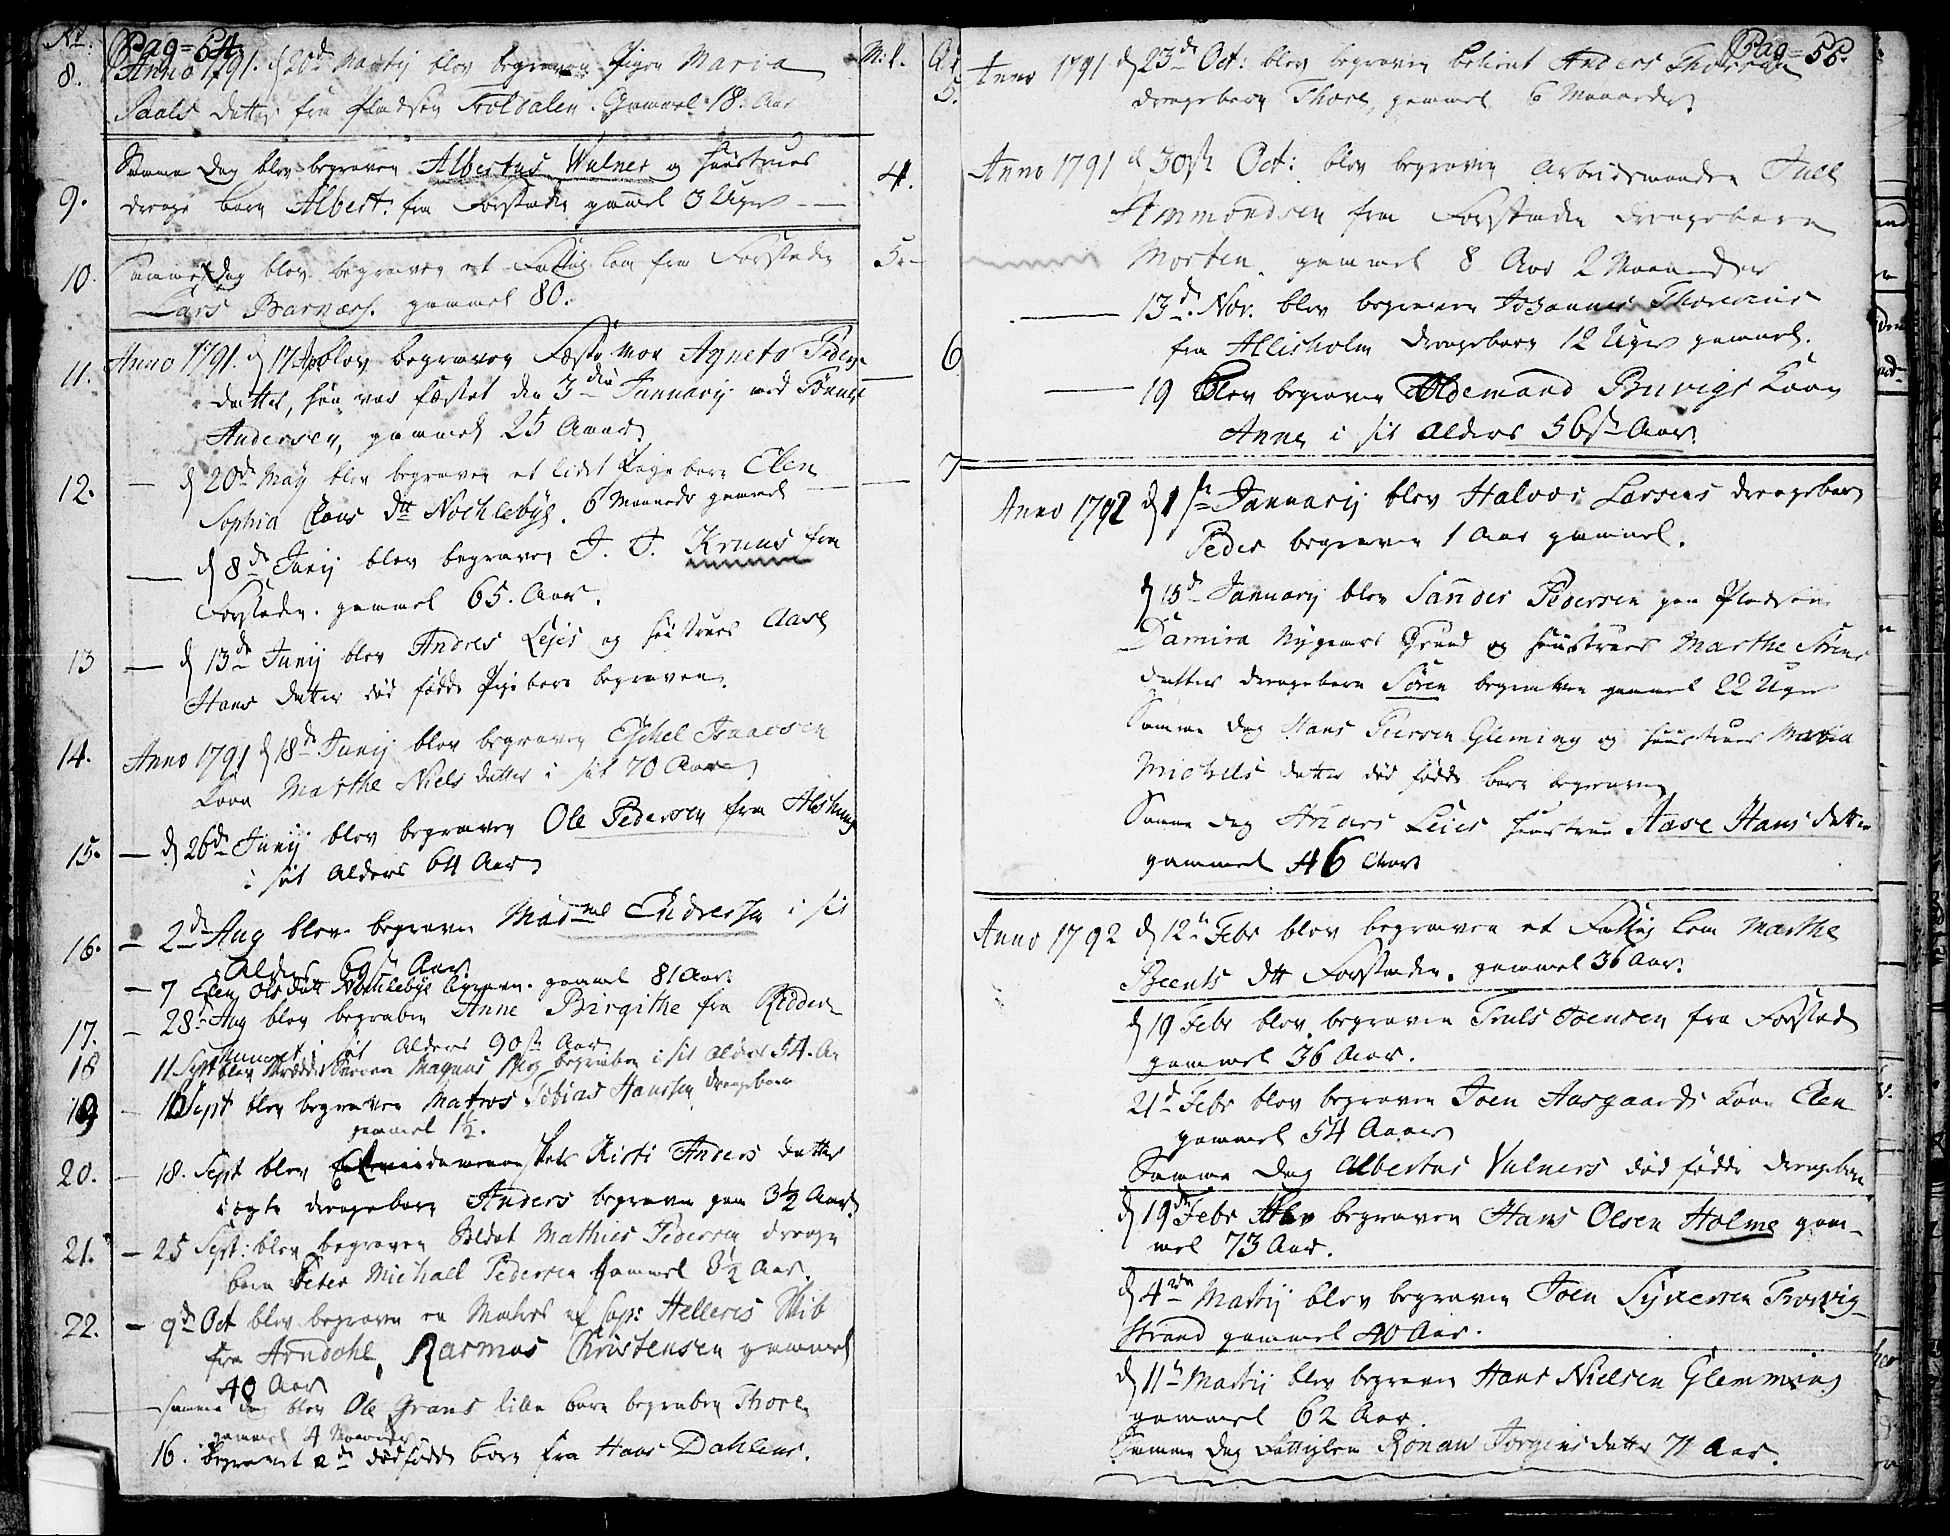 No.
Pag= 54.
M:k.
8. Anno 1791. d 20de Martij blev begraven Pigen Maria
Paals datter fra Pladsen Troldalen. Gammel 18. Aar
9. Samme Dag blev begraven Albertus Wulner og Hustrues
drenge barn Albert. fra Forstaden gammel 3 Uger
4.
10. Samme Dag blev begraven et Fattig lem fra Forstaden
Lars Barnæs. gammel 80.
5
11. Anno 1791. d 17 Apr blev begraven Fæste Moe Agneta Peders
datter, hun var fæstet den 3die Januarij med Tønnes
Andersen, gammel 25 Aar
12. d 20de Maij blev begraven et lidet Pige barn Elen
Sophia Claus Dtt Nochlebye. 6 Maaneder gammel
d 8de Junij blev begraven J. J. Kruus fra
Forstaden. gammel 65. Aar.
13 d 13de Junij blev Andres Lejes og Hustrues Aase
Hans datter død fødde Pige barn begraven.
14. Anno 1791 d 18de Junij blev begraven Eschel Isaacsen
Kone Marthe Niels datter i sit 70 Aar
15. d 26de Junij blev begraven Ole Pedersen fra
i sit Alders 64 Aar
16. 2de Aug blev begraven Endersen i sit
Alders 69de Aar
7 Elen Ols datt Nochlebye begraven. gammel 81 Aar.
17. 28 Aug blev begraven Anne Birgithe fra Ridder
i sit Alders 90de Aar
18 11 Sept blev Skrædder Magnus begraven i sit Alder 54. Aar
19 16 Sept blev begraven Matros Tobias Hanssen drengebarn
gammel 1½.
20. 18. Sept blev Kirsti Anders datter
uægte drengebarn Anders begraven gam 3½ Aar.
21. 25 Sept: blev begraven Soldat Mathies Pedersen drenge
barn Peter Michael Pedersen gammel 8½ Aar.
22. 9de Oct blev begraven en Matros af Cap: Helleres Skib
fra Arndahl, Rasmus Christensen gammel
40 Aar
samme dag blev Ole Grans lille barn begraben Thore
gammel 4 Maaneder
16. begravet 2de dødfødde born fra Hans Dahlens.
Pag= 55.
5. Anno 1791 d 23de Oct: blev begraven betient Anders Thorsen
drengebarn Thore, gammel 6 Maaneder
Anno 1791 d 30te Oct: blev begraven Arbeidsmanden Juel
Ammondsen fra Forstaden drengebarn
Morten gammel 8 Aar 2 Maaneder
13de Nov. blev begraven Johannes Thoresens
fra Allisholm drengebarn 12 Uger gammel.
6
19 blev begraven Oldemand Buvigs Kone
Anne i sit Alders 56te Aar
7
Anno 1792 d 1ste Januarij blev Halvor Larsens drengebarn
Peder begraven 1 Aar gammel.
d 15de Januarij blev Sander Pedersen paa Pladsen
Damira Nygaars Grund og Hustrues Marthe Sørens
datter drengebarn Søren begraven gammel 22 Uger
Samme Dag Hans Gleming og Hustrues Maria
Michels datter død fødde barn begraven
Samme dag Andres Leies Hustrue Aase Hans datter
gammel 46 Aar
Anno 1792 d 12te Febr blev begraven et Fattig Lem Marthe
Beents Dtt Forstaden. gammel 36 Aar.
d 19 Febr blev begraven Truls Joensen fra Forstad
gammel 36 Aar.
21de Febr blev begraven Joen Aasgaards Kone Elen
gammel 54 Aar
Samme Dag Albertus Vulners død fødde drengebarn
d 19de Febr blev begraven Hans Olsen Holme gam-
mel 73 Aar.
d 4de Martij blev begraven Joen Syversen Trosvig-
strand gammel 40 Aar.
d 11te Martij blev begraven Hans Nielsen Glemming
gammel 62 Aar.
Samme Dag Fattiglem Ronau Jorgensdatter 71 Aar.